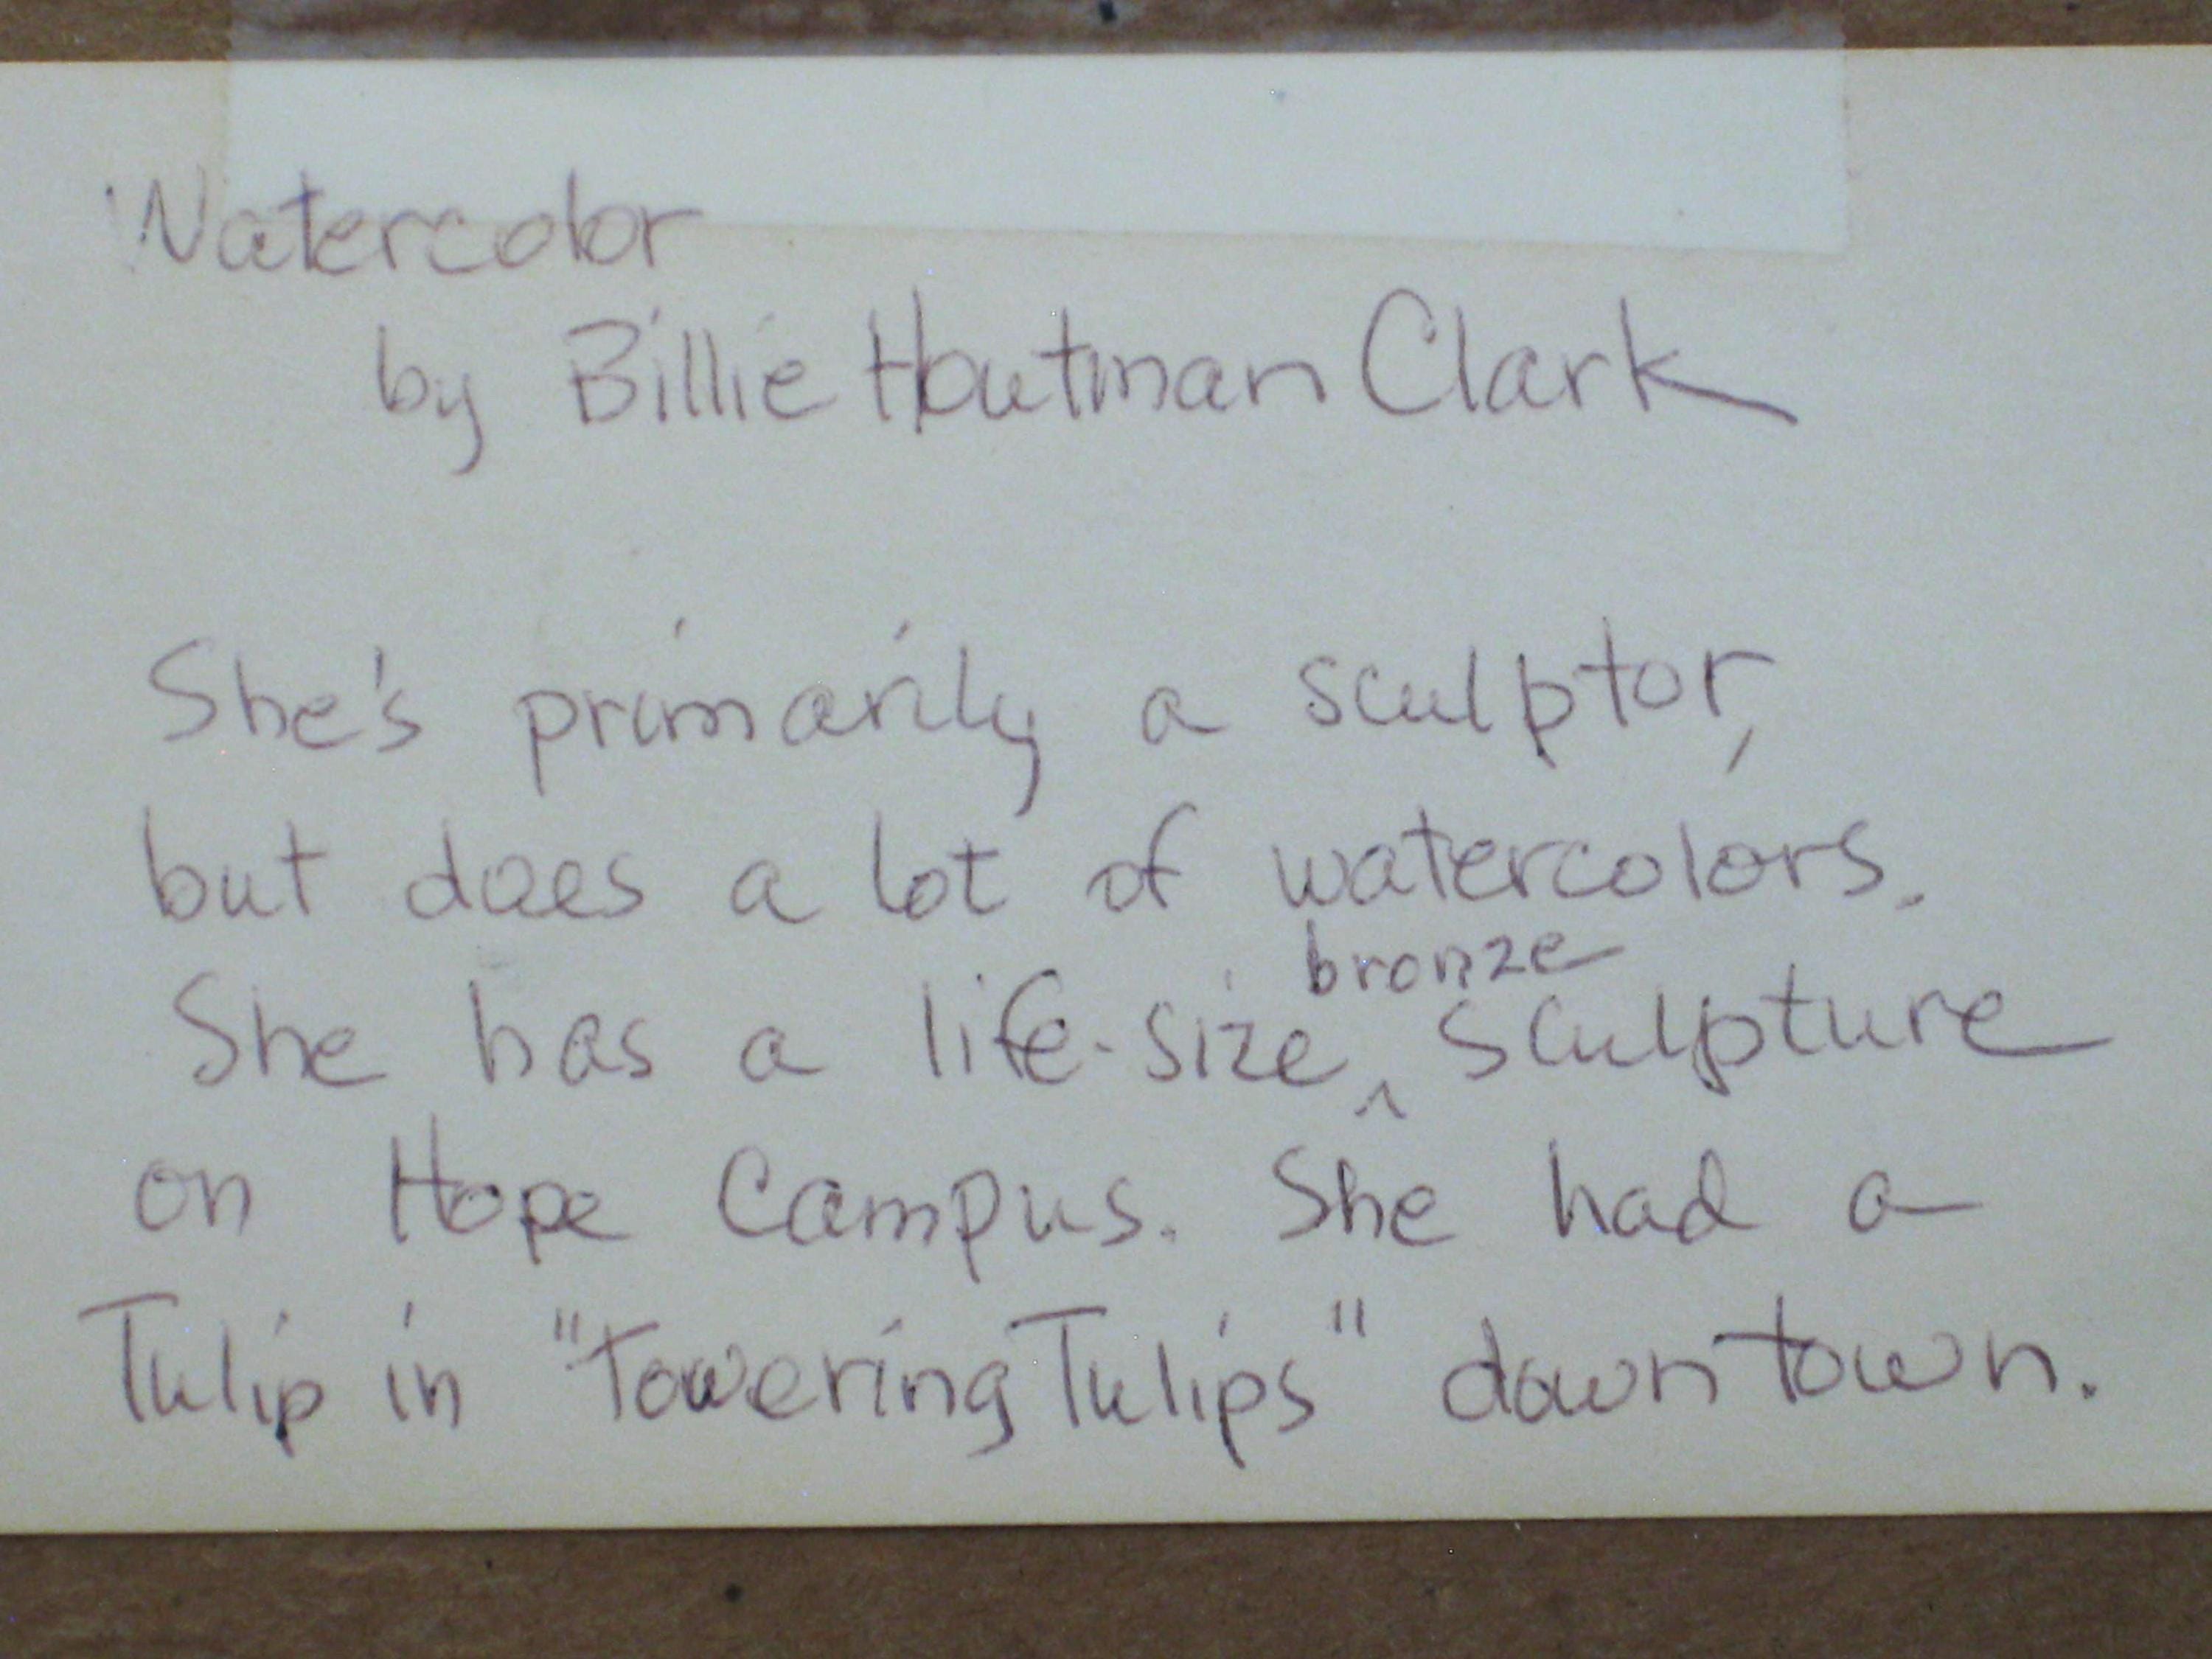 Watercolor
by Billie Houtman Clark
She's primarily a sculptor,
but does a lot of watercolors.
She has a life-size ^bronze sculpture
on Hope Campus. She had a
Tulip in "Towering Tulips" downtown.